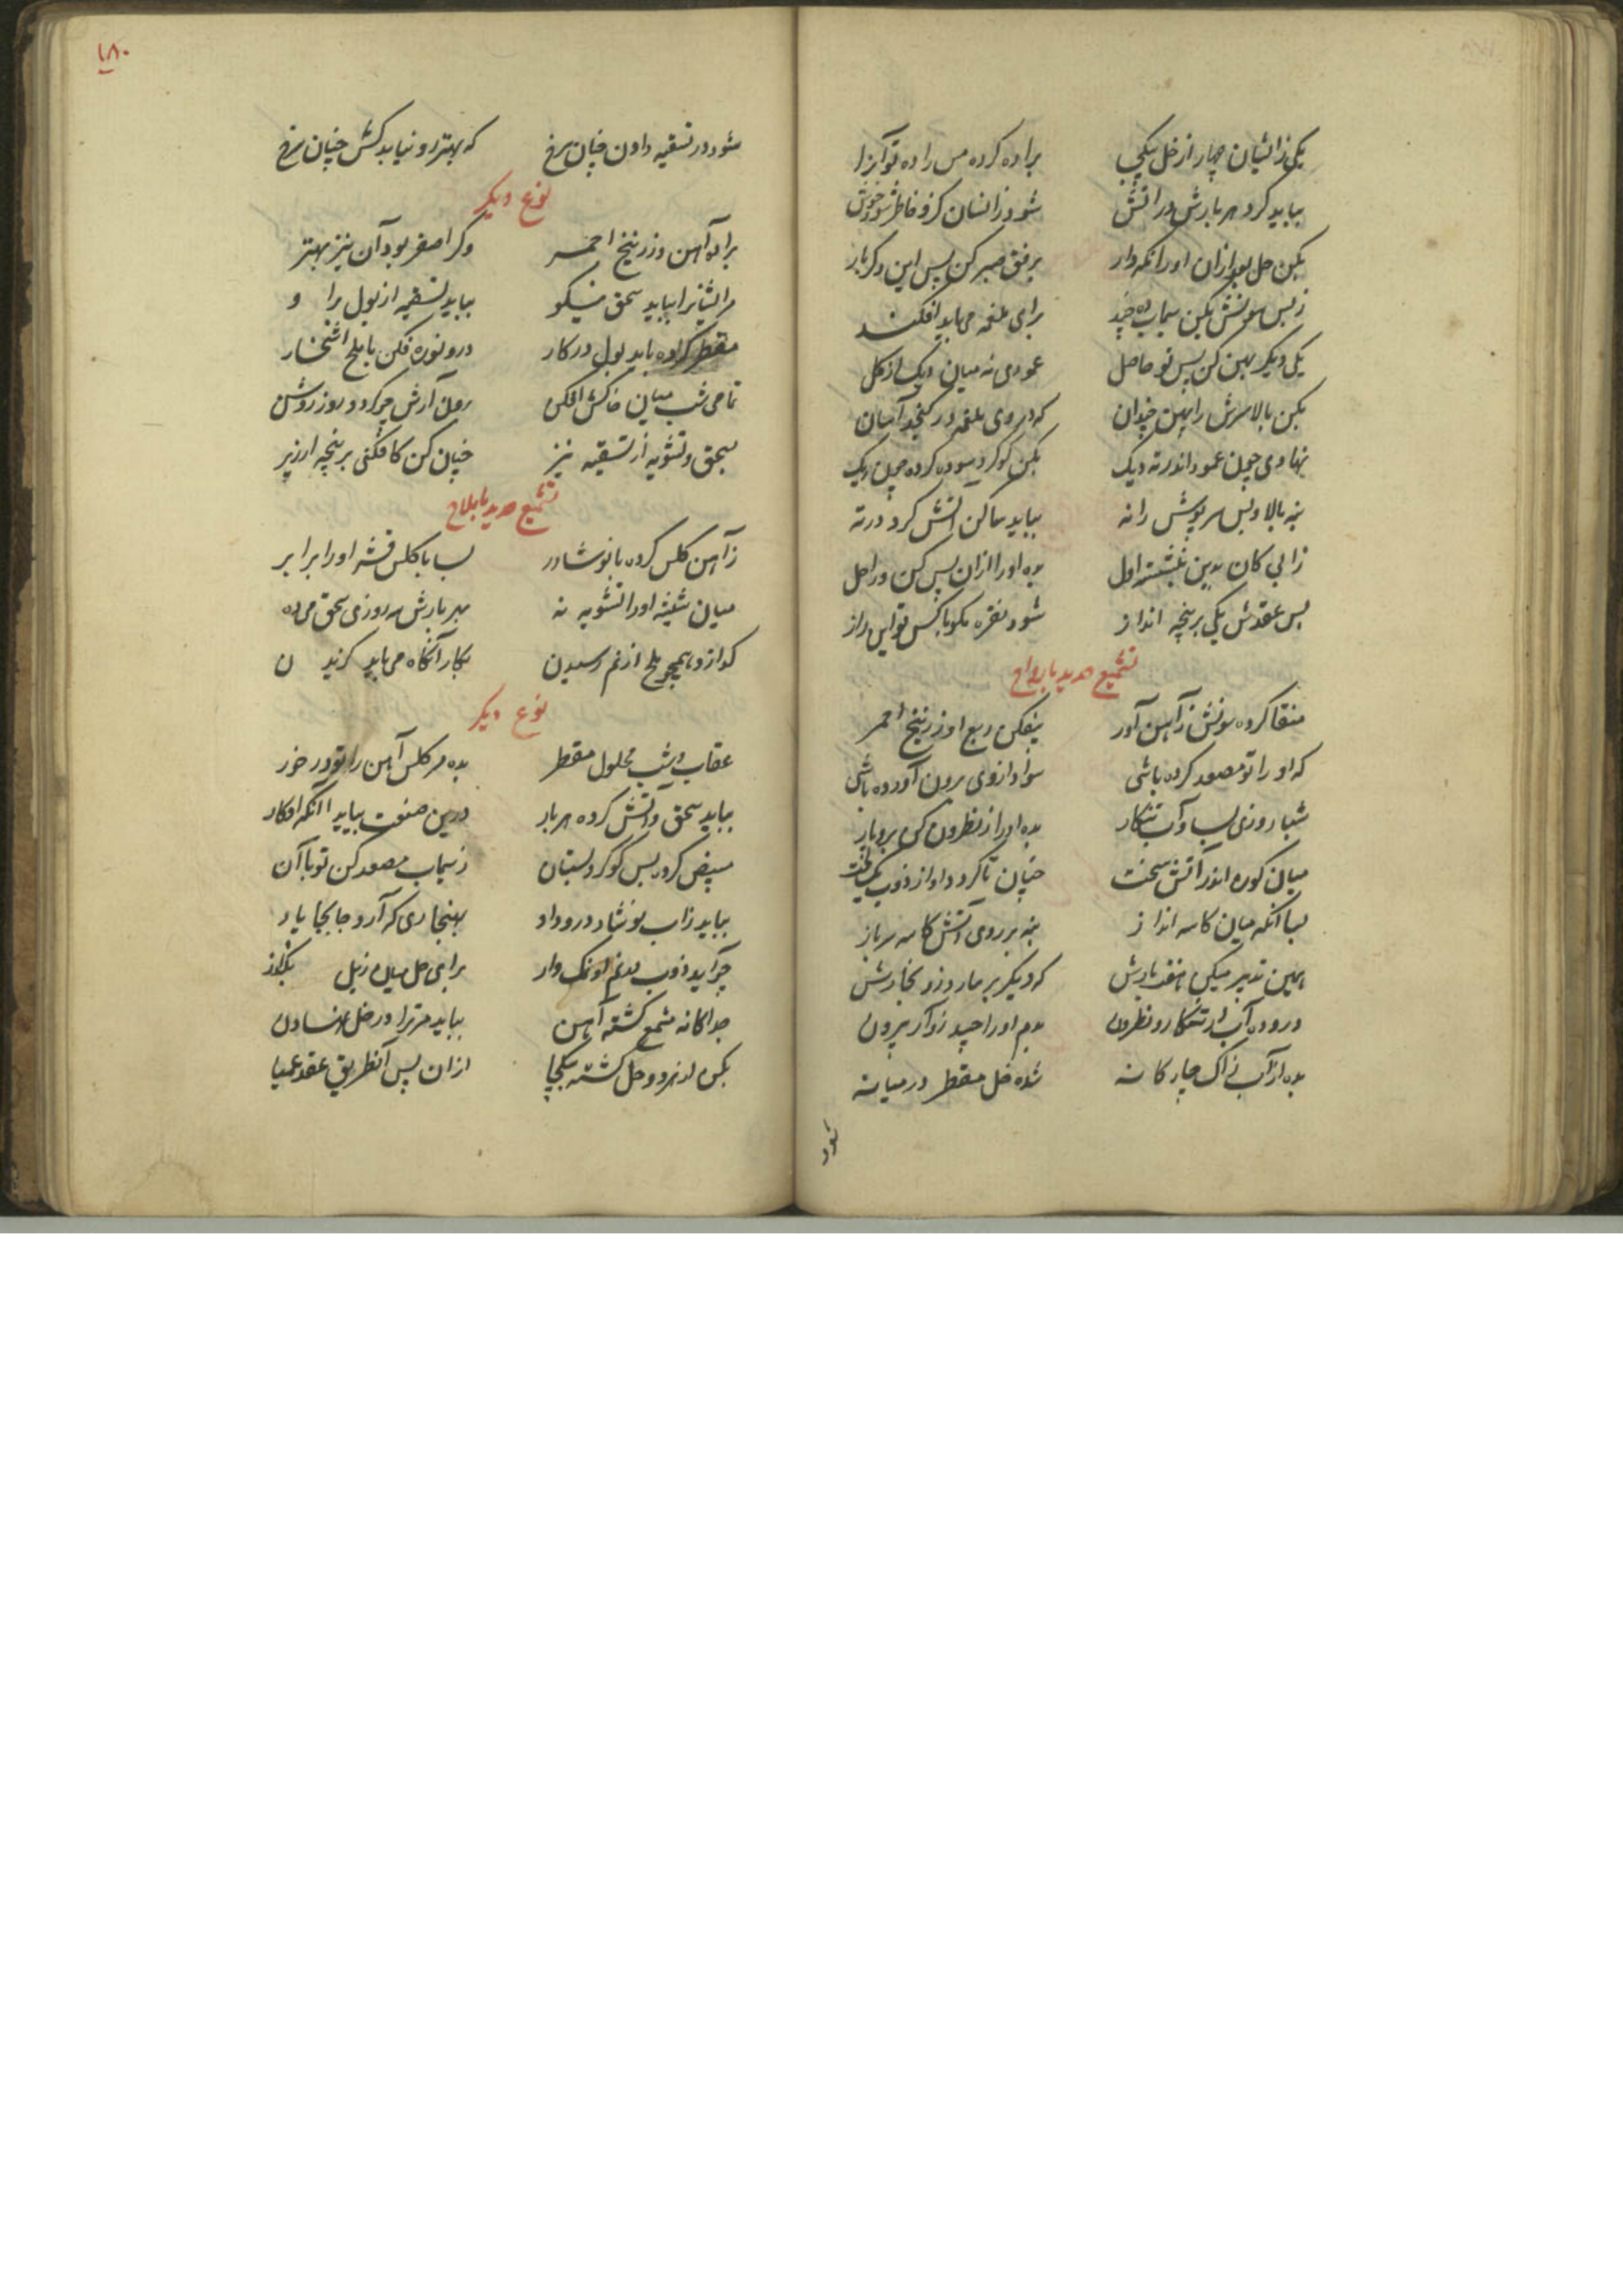 یکی زایشان چهار از خل یکی براده کرده مس را ده تو آنرا
بباید کرد هر بارش در آتش شود زانسان کزو خاطر شود خوش
بکن حل بعد ازان او را نکه دار برفق صبر کن پس این دکر بار
ز پس سونش بکن سیماب ده برای ملغمه می باید افکند
یکی دیکر بهین کن پس تو حاصل عمودی نه میان دیک از کل
بکن بالا سرش را پهن چندان که در روی ملغمه در کنجد آسان
نهادی چون عمود اندر ته دیک بکن کوکرد سوده کرده چون ریک
بنه بالا و پس سرپوش را نه بباید ساکن آتش کرد در ته
زابی کان بدین نبشته اول بده او را ازان پس کن ورا حل
پس عقدش یکی بر پنجه انداز شود نقره مکو با کس تو این راز
تشمیع حدید بارواح
منقا کرده سونش ز آهن آور بیفکن ربع او زرنیخ احمر
که او را تو مصعد کرده باشی سواد از وی برون آورده باشی
شبا روزی بساو آب تنکار بده او را از نطرون کن برو بار
میان کوره اندر آتش سخت چنان تا کردد او از ذوب یک لخت
بسا آنکه میان کاسه انداز بنه بر روی آتش کاسه سرباز
بهین تدبیر میکن هفت بارش که دیکر بر مارود زو بخارش
درو ده آب از تنکار و نطرون بدم او را جسد زو آر بیرون
بده از آب زاک چارکانه شده خل مقطر در میانه
شود
۱۸۰
شود در تسقیه دادن چنان سرخ که بهتر زو نیابد کش چنان سرخ
نوع دیکر
براده آهن و زرنیخ احمر وکر اصفر بود آن نیز بهتر
مر ایشانرا بباید سحق نیکو بباید تسقیه از بول برا و
مقطر کرده باید بول در کار درو نوره فکن با ملح اشخار
تمامی شب میان خاکش افکن برون آرش چو کردد روز روشن
بسحق و تشویه از تسقیه نیز چنان کن کافکنی بر پنجه ارزیز
تشمیع حدید باملاح
ز آهن کلس کرده با نوشادر بسا با کلس قشر او را برابر
میان شیشه او را تشویه نه بهر بارش سه روزی سحق می ده
کدازد همچو ملح از غم رسیدن بکار آنکاه می باید کزیدن
نوع دیکر
عقاب و شب محلول مقطر بده مر کلس آهن را تو در خور
بباید سحق و آتش کرده هر بار درین صنعت بباید آنکه افکار
مبیض کرد پس کوکرد بستان ز سیماب مصعد کن تو با آن
بباید زاب نوشادر ورا داد بهنجاری که آرد جا بجا یاد
چو آید ذوب بدغم او نمک وار برای حل میان زبل بکذار
جداکانه مشمع کشته آهن بباید مر ترا در خل نهادن
بکن این هر دو حل کشته یکجا ازان پس آنطریق عقد عمیا